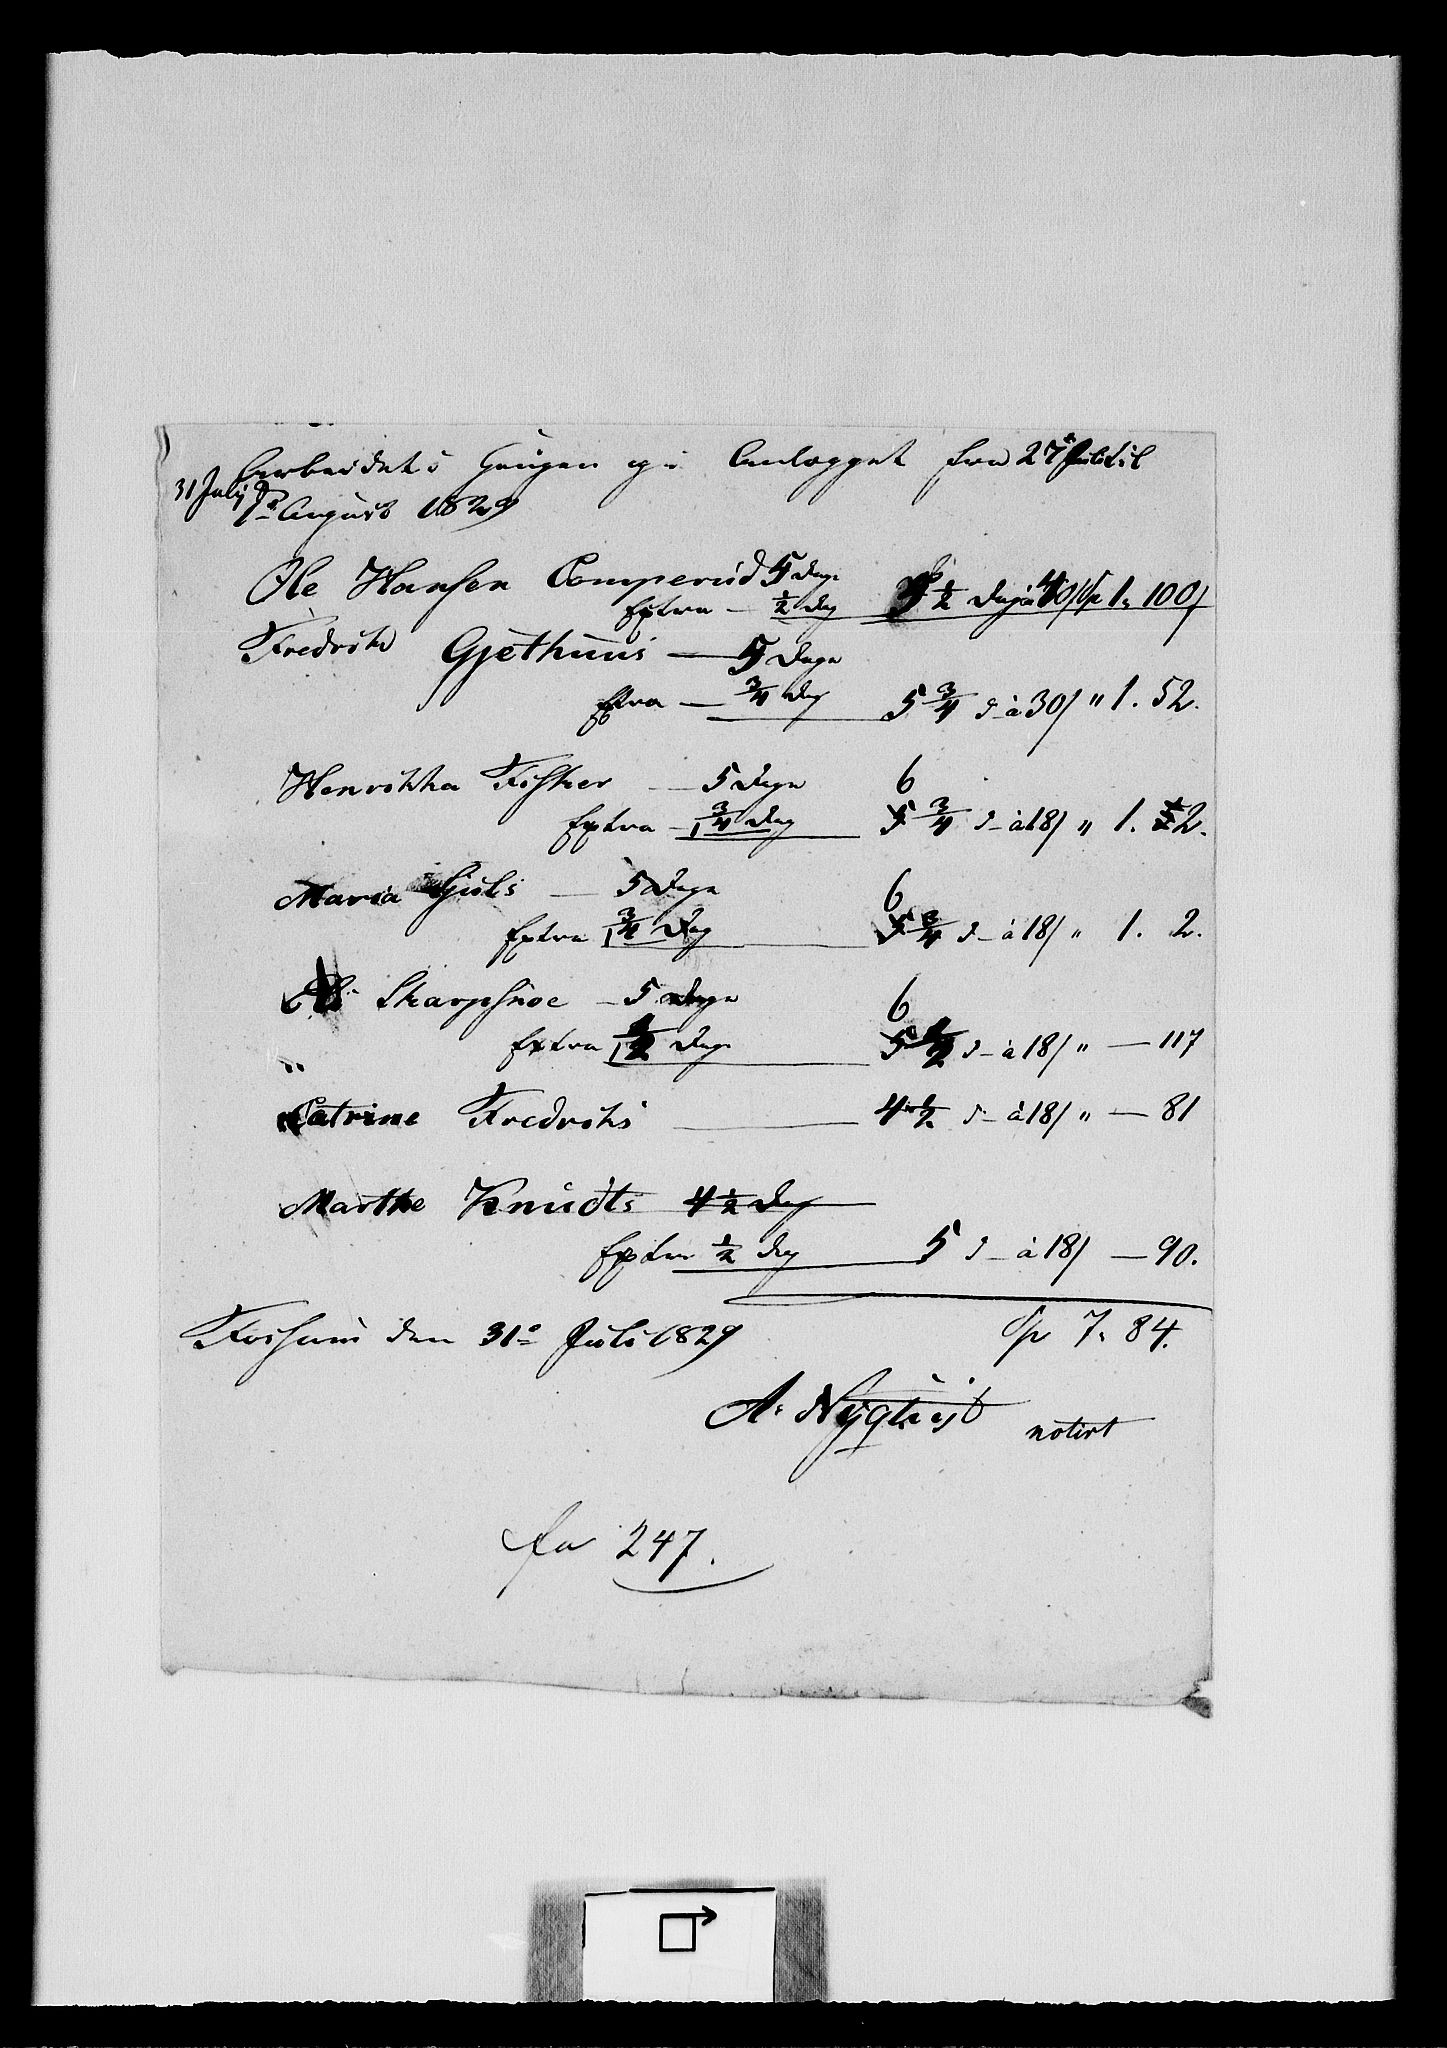 Arbeidet i Haugen og i Anlægget fra 27de Juli til
31 July
1ste August 1829
Ole Hansen Comperud 5 Dage
Extra — 1/2 Dag 5 1/2 Dag à 40/ Sp 1 " 100/
Fredrik Gjethuus — 5 Dage
Extra — 3/4 Dag 5 3/4 d— à 30/ " 1. 52.
Henrikka Fisker — 5 Dage 6
Extra — 1 3/4 Dag 5 3/4 d— à 18/ " 1. 2.
Maria Gjuls — 5 Dage 6
Extra 1 3/4 Dag 5 3/4 d— à 18/ " 1. 2.
Skarpsnoe — 5 Dage 6
Extra 1 1/2 Dag 5 1/2 d— à 18/ " — 117
Catrine Fredriks — 4 1/2 d— à 18/ " — 81
Marthe Knudts 4 1/2 Dag
Extra 1/2 Dag 5 d— à 18/ — 90.
Sp 7 " 84.
Fossum den 31te Juli 1829
A. Nyquist notirt
fa 247.